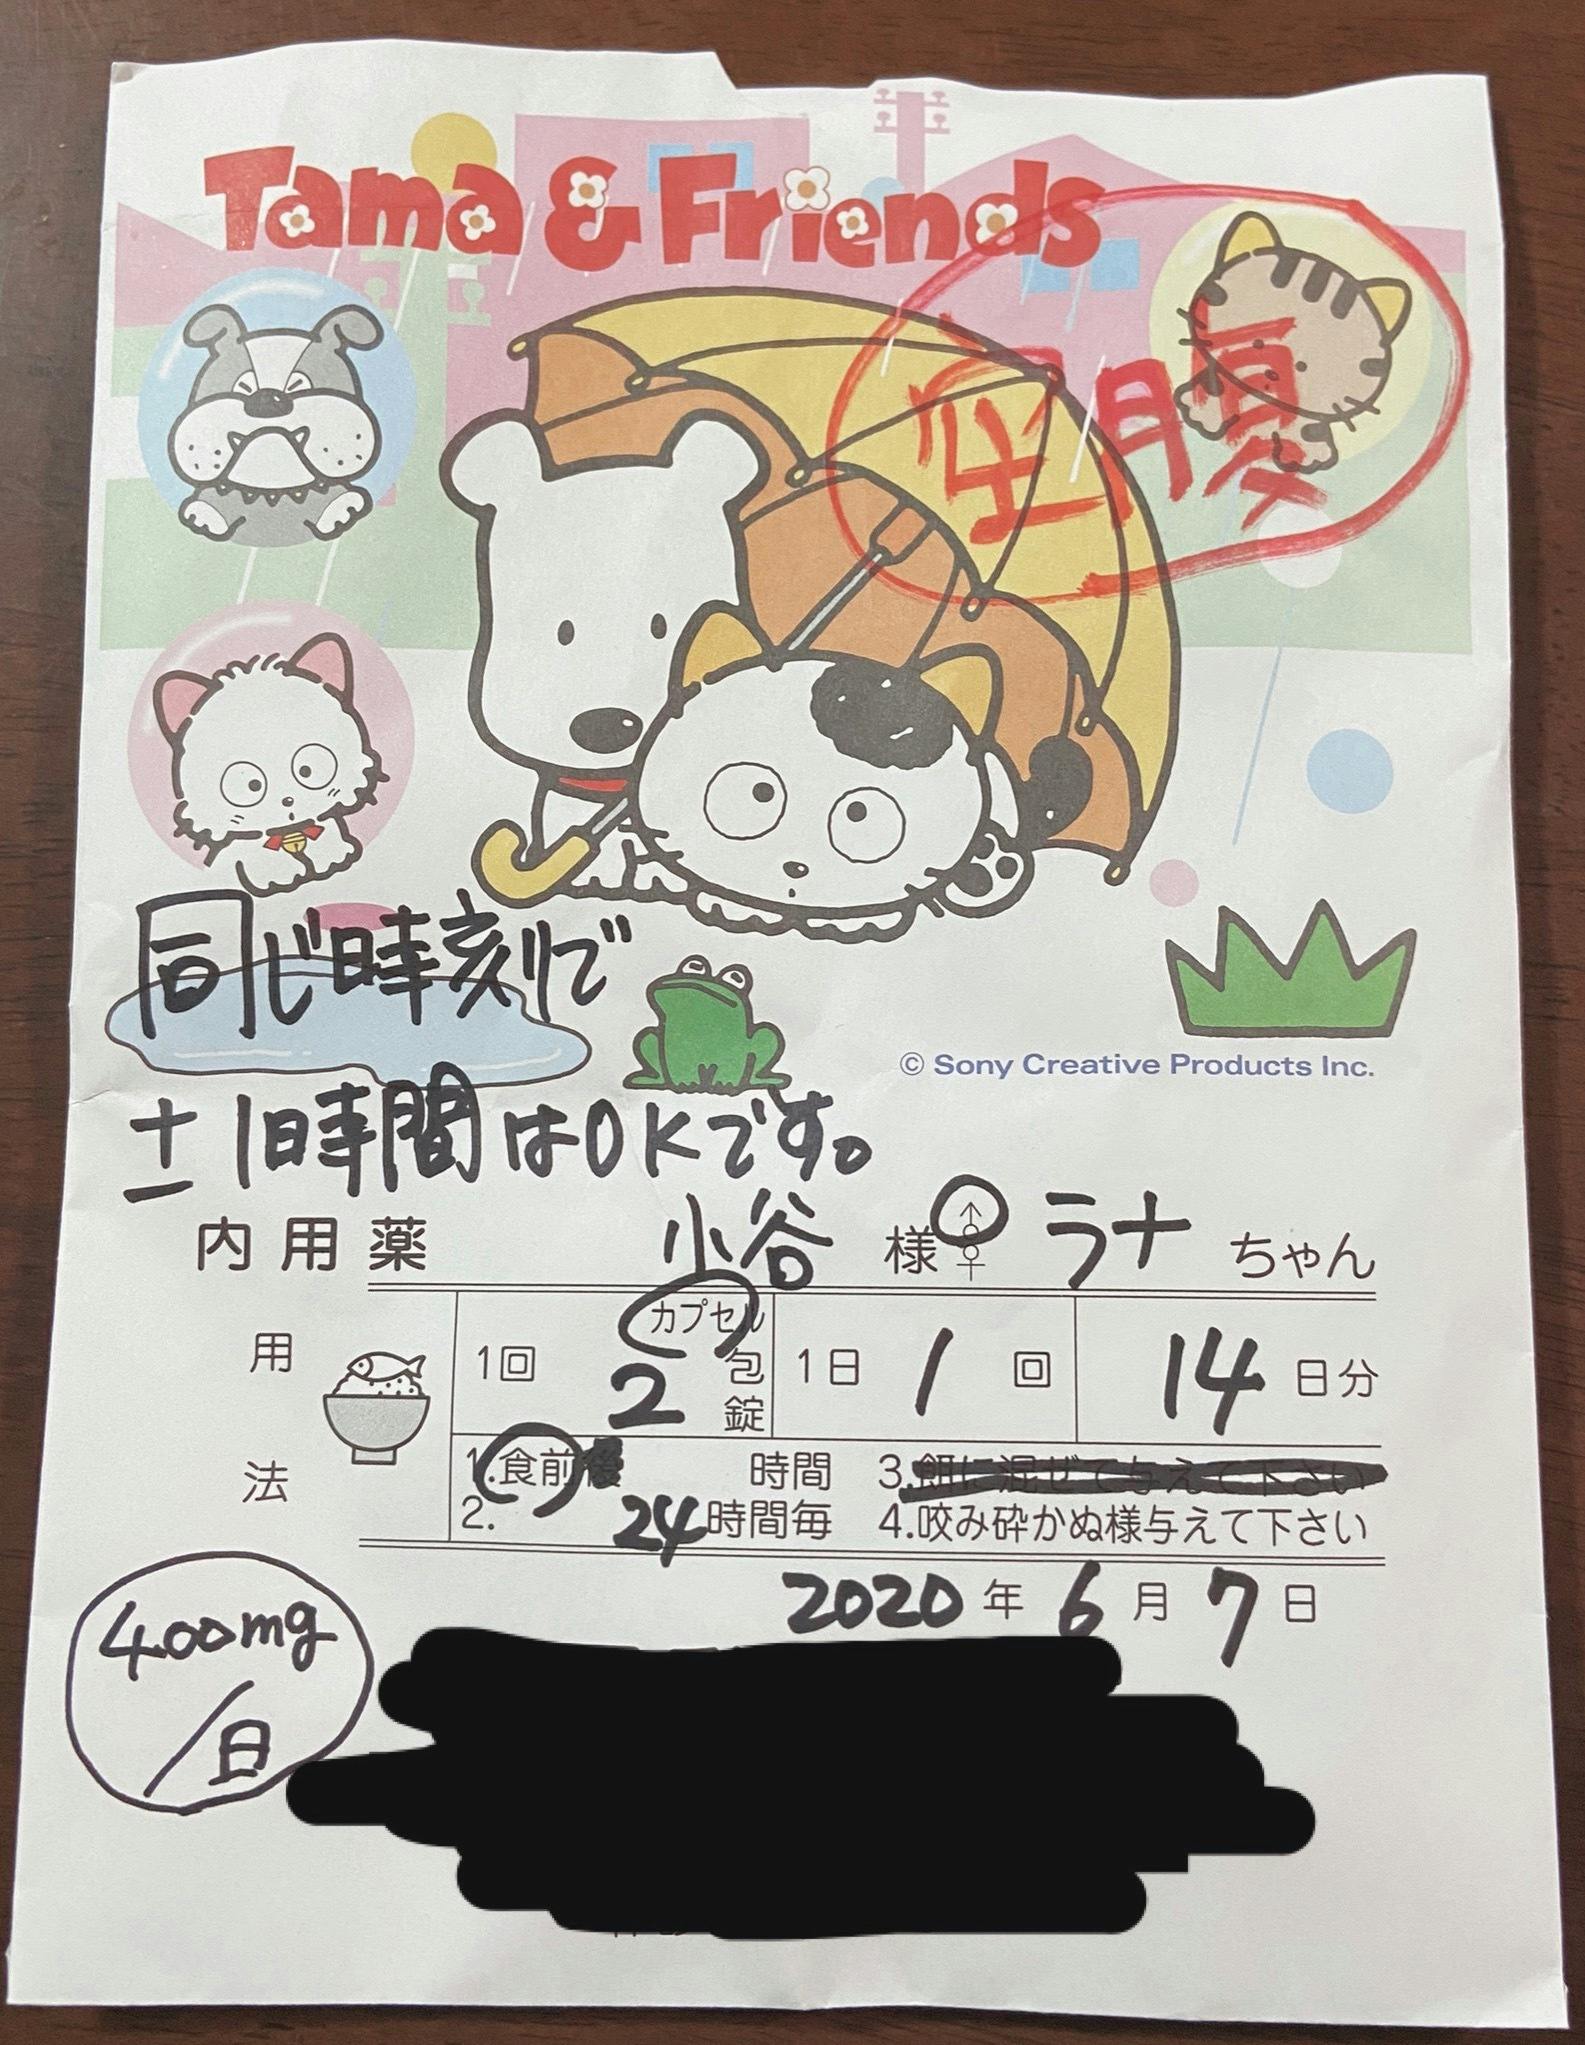 Tama & Friends
空腹
同じ時刻で
© Sony Creative Products Inc.
±1時間はOKです。
内用薬 小谷 様 ♂♀ ラナ ちゃん
用法
1回 2 カプセル 包 錠 1日 1 回 14 日分
1.食前後 時間 3.餌に混ぜて与えて下さい
2. 24時間毎 4.咬み砕かぬ様与えて下さい
2020 年 6 月 7 日
400mg
/日